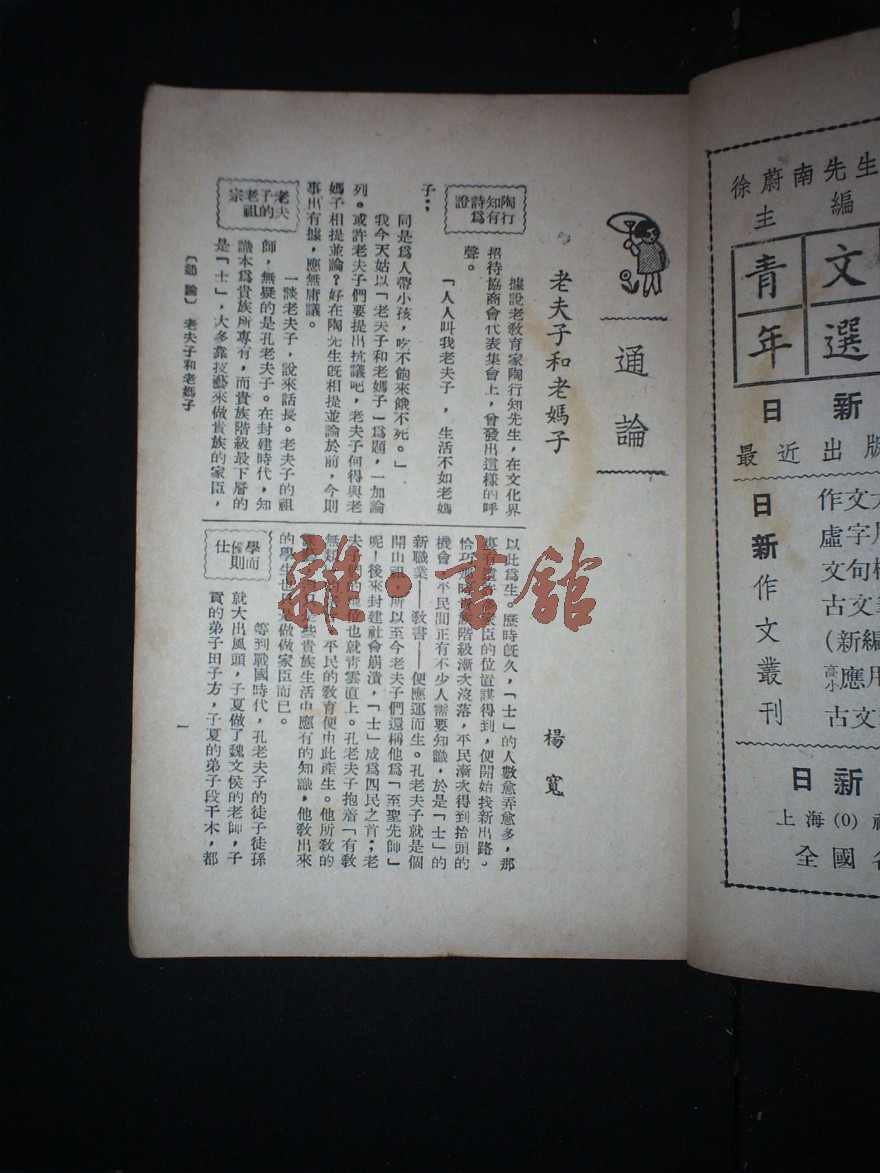 通論
老夫子和老媽子
楊寬
陶行知有詩爲證
據說老教育家陶行知先生，在文化界
招待協商會代表集會上，曾發出這樣的呼
聲。
「人人叫我老夫子，生活不如老媽
子；
同是爲人帶小孩，吃不飽來餓不死。」
我今天姑以「老夫子和老媽子」爲題，一加論
列。或許老夫子們要提出抗議吧，老夫子何得與老
媽子相提並論？好在陶先生旣相提並論於前，今則
事出有據，應無庸議。
老夫子的老祖宗
一談老夫子，說來話長。老夫子的祖
師，無疑的是孔老夫子。在封建時代，知
識本爲貴族所專有，而貴族階級最下層的
是「士」，大多靠技藝來做貴族的家臣，
以此爲生。歷時旣久，「士」的人數愈弄愈多，那
家臣的位置謀得到，便開始找新出路。
恰巧那時貴族階級漸次沒落，平民漸次得到抬頭的
機會，平民間正有不少人需要知識，於是「士」的
新職業——教書——便應運而生。孔老夫子就是個
開山祖，所以至今老夫子們還稱他爲「至聖先師」
呢！後來封建社會崩潰，「士」成爲四民之首；老
夫子們的地位也就青雲直上。孔老夫子抱着「有教
無類」平民的教育便由此產生。他所教的
是些貴族生活中應有的知識，他教出來
的學生也是做做家臣而已。
學而優則仕
等到戰國時代，孔老夫子的徒子徒孫
就大出風頭，子夏做了魏文侯的老師，子
貢的弟子田子方，子夏的弟子段干木，都
〔通論〕 老夫子和老媽子
一
徐蔚南先生
主編
青年
文選
日新
最近出版
日新作文叢刊
作文
虛字
文句
古文
（新編
高小應用
古文
日新
上海(0)
全國各
雜·書館